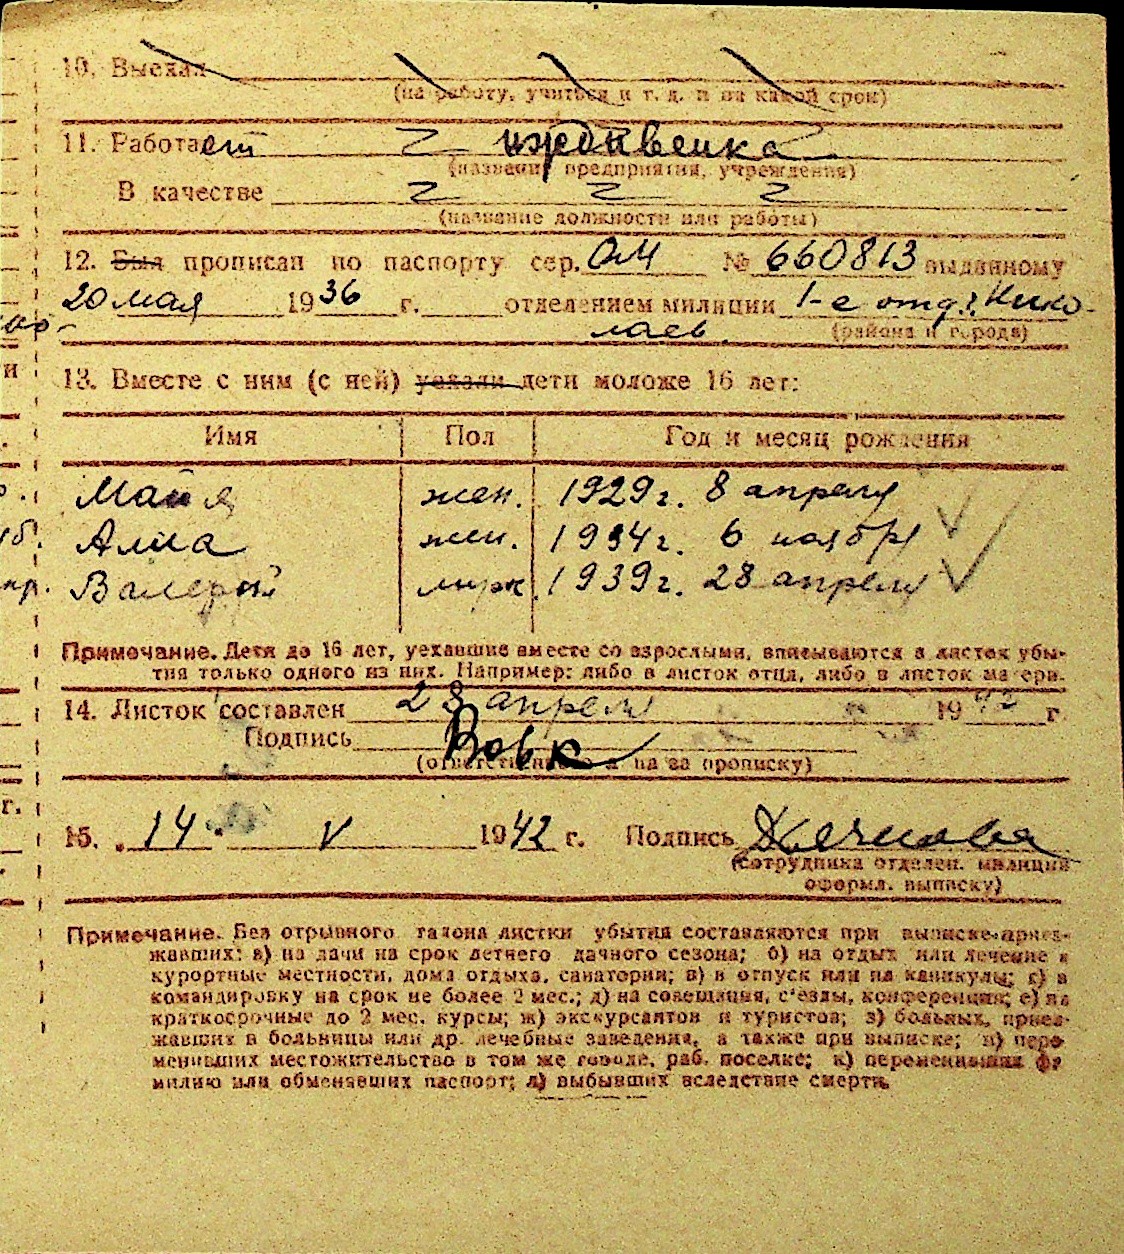 10. Выехал
(на работу, учиться и т. д. и на какой срок)
11. Работает иждивенка
(название предприятия, учреждения)
В качестве
(название должности или работы)
12. Был прописан по паспорту сер. ОМ № 660813 выданному
20 мая 1936 г. отделением милиции 1-е отд. г. Нико-
лаев. (района и города)
13. Вместе с ним (с ней) уехали дети моложе 16 лет:
Имя Пол Год и месяц рождения
Майя жен. 1929 г. 8 апреля
Алла жен. 1934 г. 6 ноября
Валерий мужс. 1939 г. 28 апреля
Примечание. Дети до 16 лет, уехавшие вместе со взрослыми, вписываются в листок убы-
тия только одного из них. Например: либо в листок отца, либо в листок матери.
14. Листок составлен 28 апреля 1942 г.
Подпись Вовк
(ответственного за прописку)
15. 14. V 1942 г. Подпись
(сотрудника отделен. милиции
оформл. выписку)
Примечание. Без отрывного талона листки убытия составляются при выписке приез-
жавших: а) на дачи на срок летнего дачного сезона; б) на отдых или лечение в
курортные местности, дома отдыха, санатории; в) в отпуск или на каникулы; г) в
командировку на срок не более 2 мес.; д) на совещания, с'езды, конференции; е) на
краткосрочные до 2 мес. курсы; ж) экскурсантов и туристов; з) больных, приез-
жавших в больницы или др. лечебные заведения, а также при выписке; и) пере-
менивших местожительство в том же городе, раб. поселке; к) переменивших фа
милию или обменявших паспорт; л) выбывших вследствие смерти.